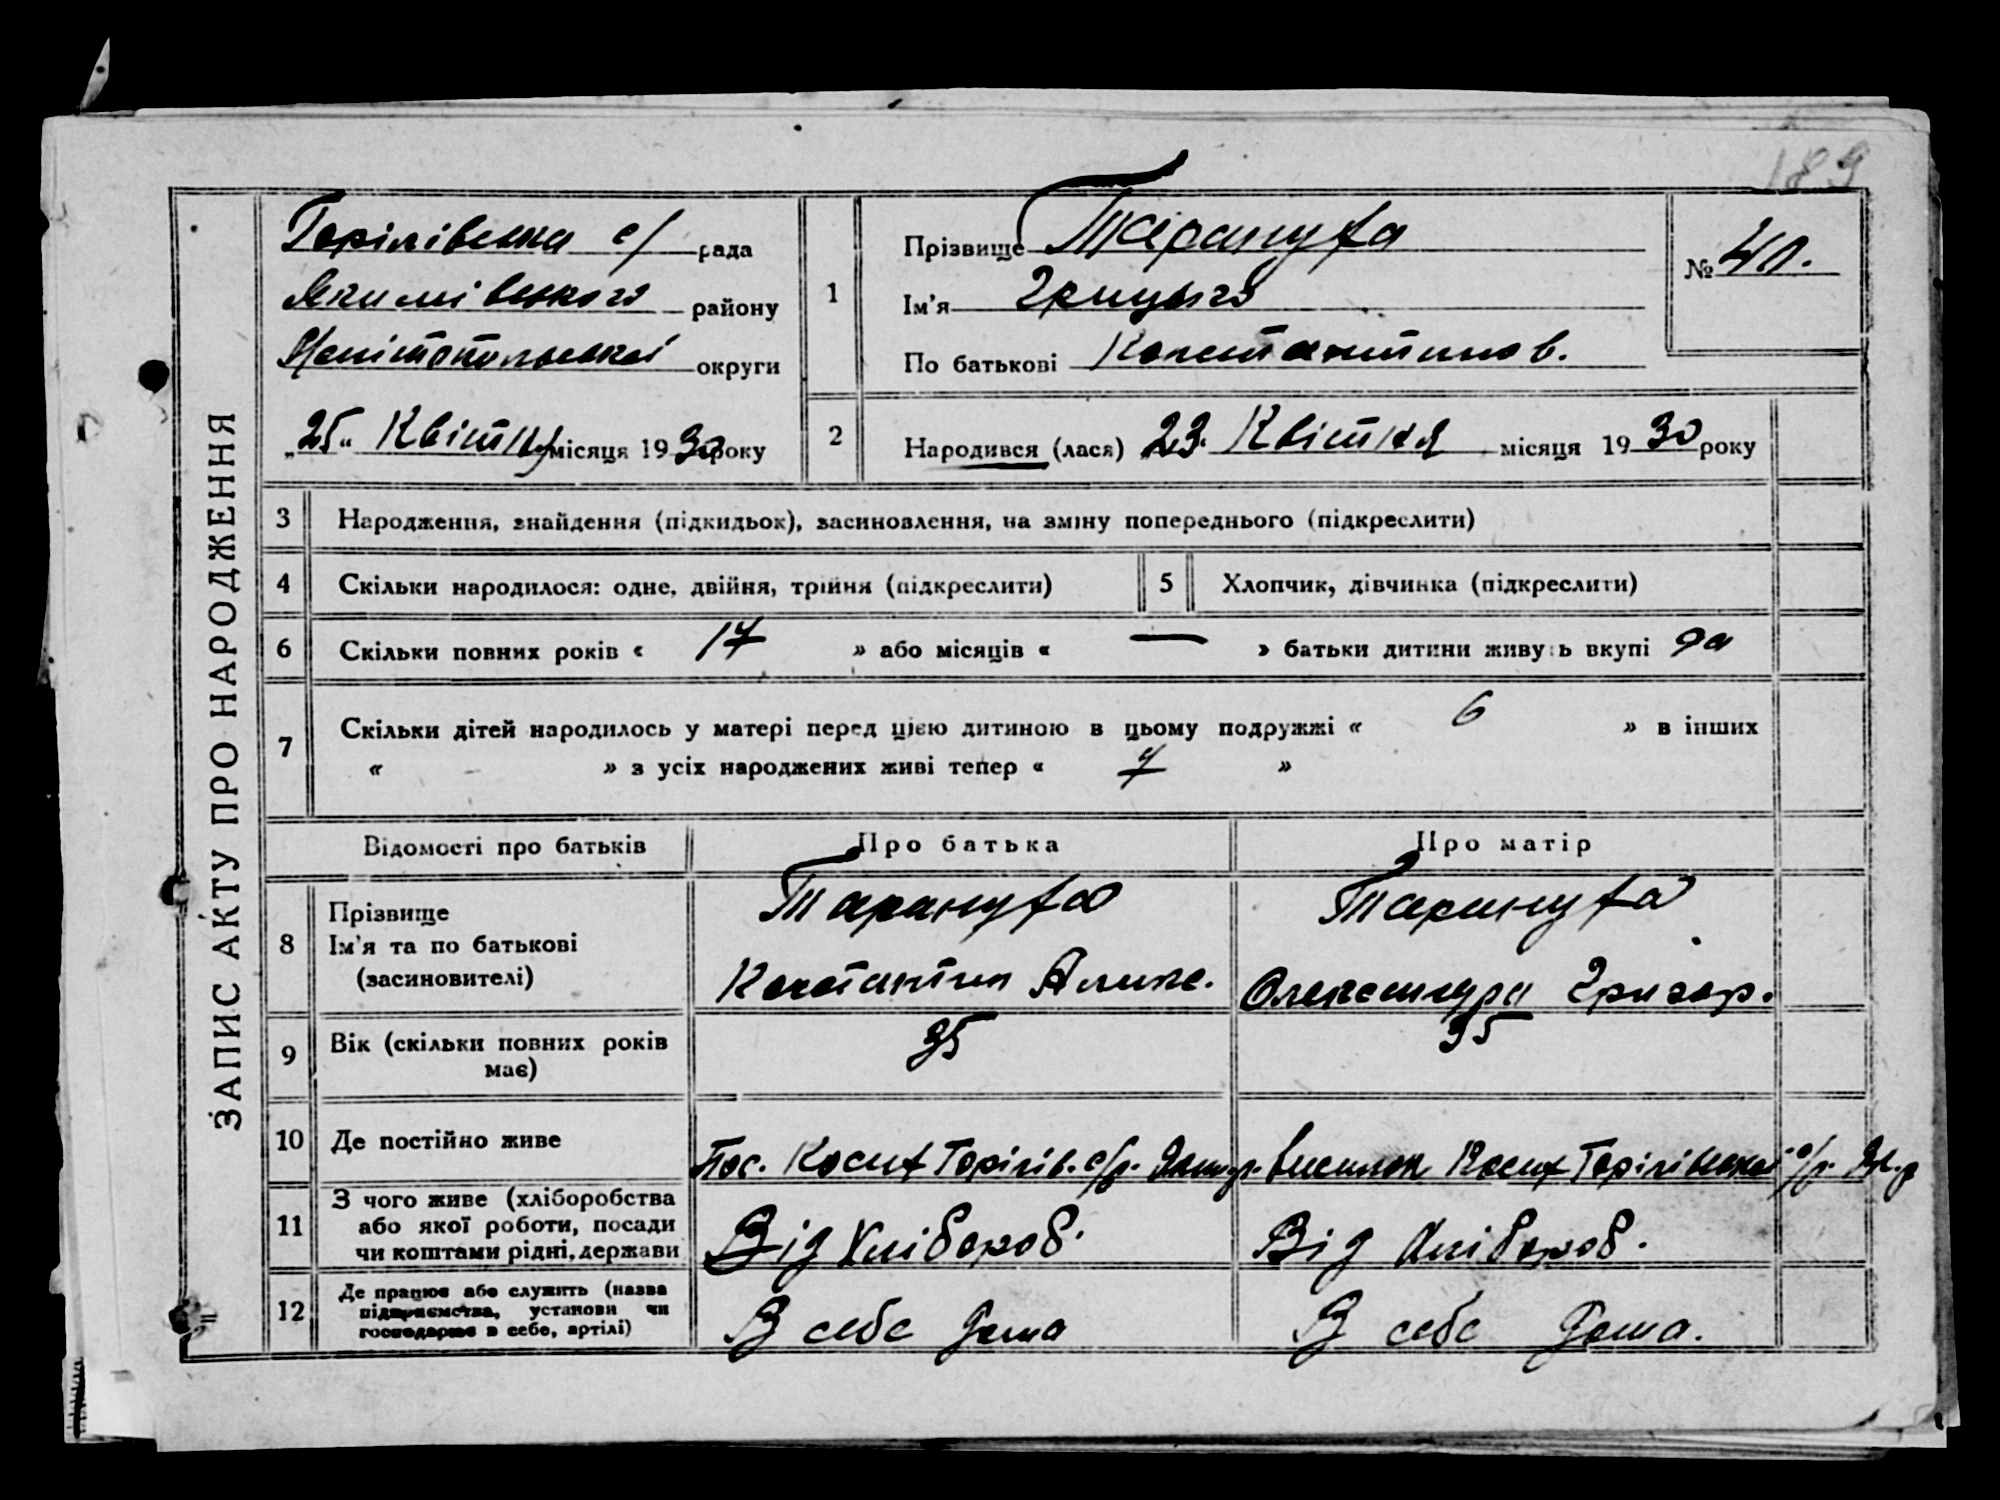 189
ЗАПИС АКТУ ПРО НАРОДЖЕННЯ
Горілівська с/ рада
Якимівського району
Меліто­польської округи
„25“ Квітня місяця 1930 року
1
Прізвище Тарануха
Ім'я Грицько
По батькові Константинов.
№ 40.
2
Народився (лася) 23. Квітня місяця 1930 року
3 Народження, знайдення (підкидьок), засиновлення, на зміну попереднього (підкреслити)
4 Скільки народилося: одне, двійня, трійня (підкреслити) 5 Хлопчик, дівчинка (підкреслити)
6 Скільки повних років « 17 » або місяців « — » батьки дитини живуть вкупі да
7 Скільки дітей народилось у матері перед цією дитиною в цьому подружжі « 6 » в інших
« » з усіх народжених живі тепер « 7 »
Відомості про батьків Про батька Про матір
8 Прізвище Тарануха Тарануха
Ім'я та по батькові
(засиновителі) Константин Олександра Григор.
9 Вік (скільки повних років 35 35
має)
10 Де постійно живе Пос. Косих Горілів. с/р. Косих Горілівської с/р. Як. р
11 З чого живе (хліборобства
або якої роботи, посади Від Хлібороб. Від Хлібороб.
чи коштами рідні, держави
12 Де працює або служить (назва
підприємства, установи чи В себе дома В себе дома.
господарює в себе, артілі)